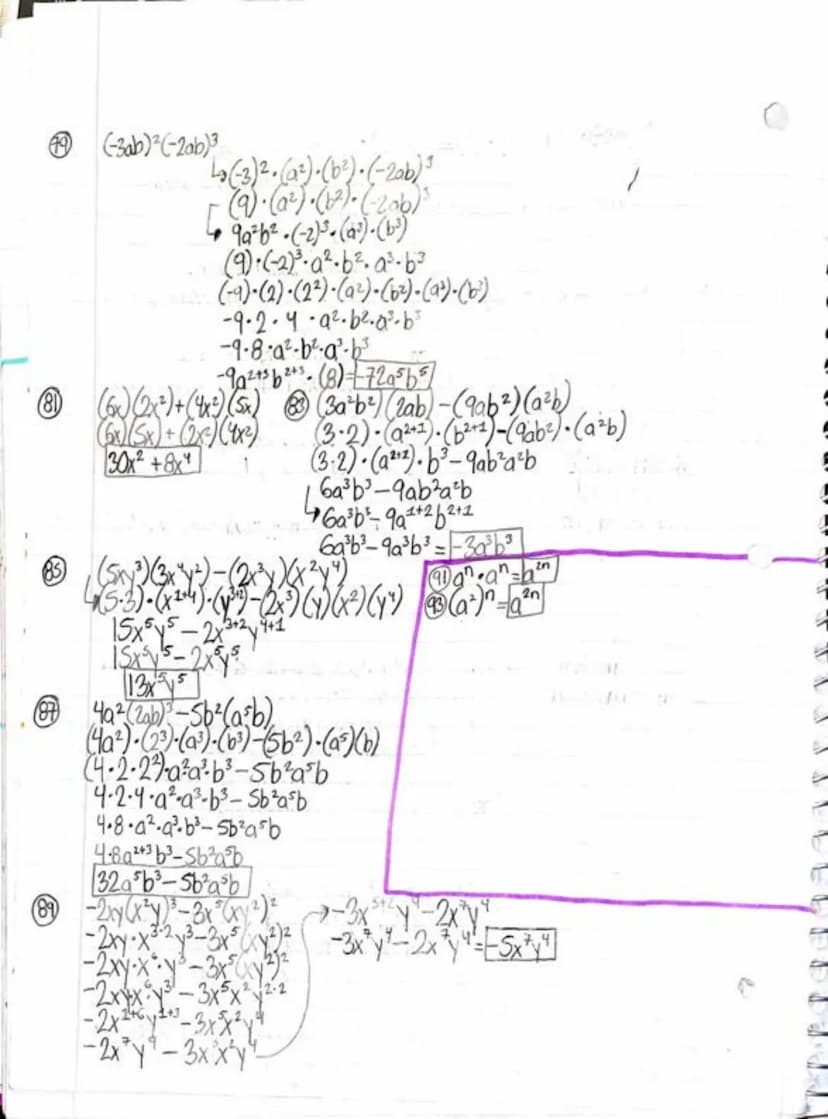 79 (-3ab)²(-2ab)³
↳(-3)²·(a²)·(b²)·(-2ab)³
(9)·(a²)·(b²)·(-2ab)³
9a²b²·(-2)³·(a³)·(b³)
(9)·(-2)³·a²·b²·a³·b³
(-9)·(2)·(2²)·(a²)·(b²)·(a³)·(b³)
-9·2·4·a²·b²·a³·b³
-9·8·a²·b²·a³·b³
-9a²⁺³b²⁺³·(8)=-72a⁵b⁵
81 (6x)(2x²)+(4x²)(5x)
(6x)(5x)+(2x²)(4x²)
30x²+8x⁴
83 (3a²b²)(2ab)-(9ab²)(a²b)
(3·2)·(a²⁺¹)·(b²⁺¹)-(9ab²)·(a²b)
(3·2)·(a²⁺¹)·b³-9ab²a²b
6a³b³-9ab²a²b
↳6a³b³-9a¹⁺²b²⁺¹
6a³b³-9a³b³=-3a³b³
85 (5xy³)(3x⁴y²)-(2x³y)(x²y⁴)
↳(5·3)·(x¹⁺⁴)·(y³⁺²)-(2x³)(y)(x²)(y⁴)
15x⁵y⁵-2x³⁺²y⁴⁺¹
15x⁵y⁵-2x⁵y⁵
13x⁵y⁵
91 aⁿ·aⁿ=a²ⁿ
93 (a²)ⁿ=a²ⁿ
87 4a²(2ab)³-5b²(a⁵b)
(4a²)·(2³)·(a³)·(b³)-(5b²)·(a⁵)(b)
(4·2·2²)·a²a³·b³-5b²a⁵b
4·2·4·a²·a³·b³-5b²a⁵b
4·8·a²·a³·b³-5b²a⁵b
4·8a²⁺³b³-5b²a⁵b
32a⁵b³-5b²a⁵b
89 -2xy(x²y)³-3x⁵(xy²)²
-2xy·x³·²y³-3x⁵(xy²)²
-2xy·x⁶·y³-3x⁵(xy²)²
-2xy·x⁶·y³-3x⁵x²y²·²
-2x¹⁺⁶y¹⁺³-3x⁵x²y⁴
-2x⁷y⁴-3x⁵x²y⁴
→-3x⁵⁺²y⁴-2x⁷y⁴
-3x⁷y⁴-2x⁷y⁴=-5x⁷y⁴